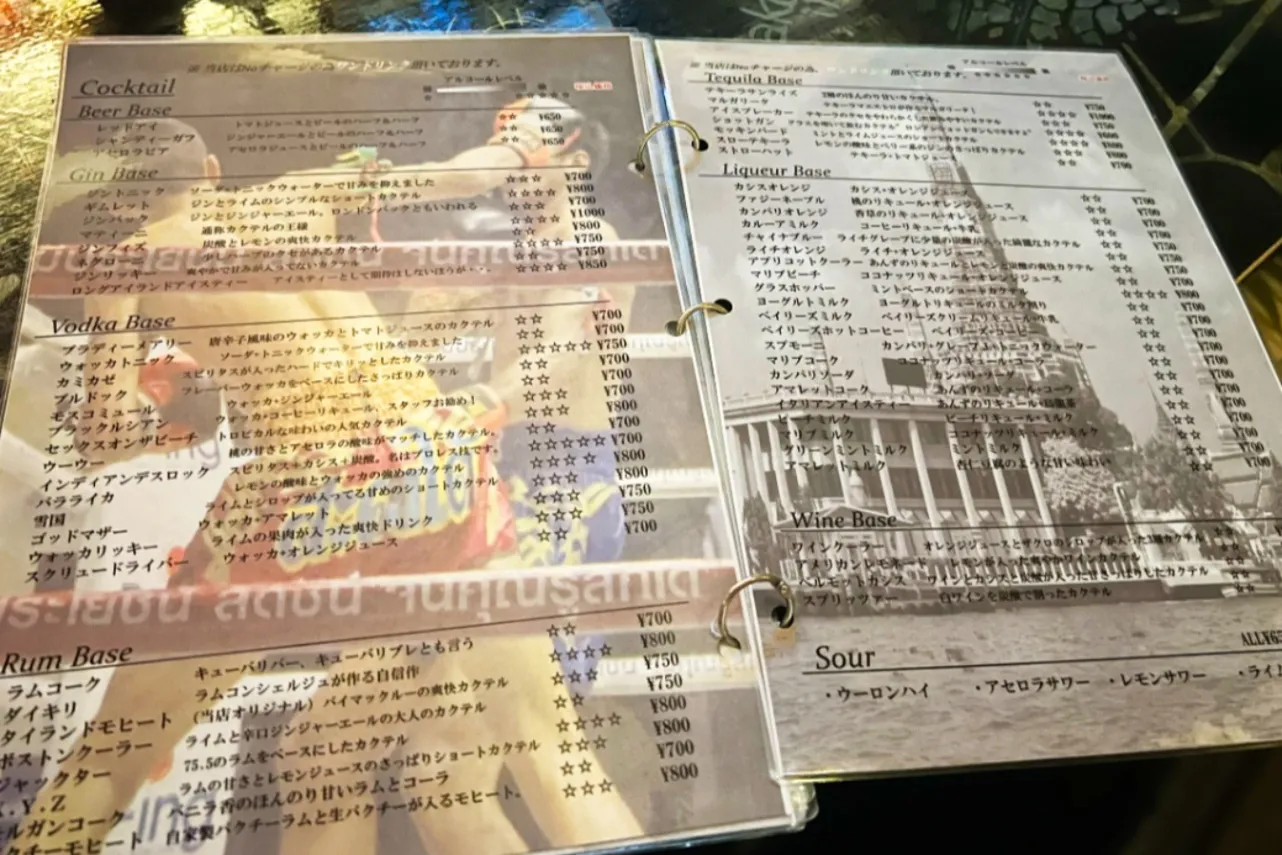 ※ 当店はNoチャージの為ワンドリンク頂いております。
Cocktail
アルコールレベル
Beer Base
レッドアイ トマトジュースとビールのハーフ&ハーフ ☆☆ ¥650
シャンディーガフ ジンジャーエールとビールのハーフ&ハーフ ☆☆ ¥650
アセロラビア アセロラジュースとビールのハーフ&ハーフ ☆☆ ¥650
Gin Base
ジントニック ソーダ・トニックウォーターで甘みを抑えました ☆☆☆ ¥700
ギムレット ジンとライムのシンプルなショートカクテル ☆☆☆☆ ¥800
ジンバック ジンとジンジャーエール。ロンドンバックともいわれる ☆☆☆ ¥700
マティーニ 通称カクテルの王様 ☆☆☆☆ ¥1000
ジンフィズ 炭酸とレモンの爽快カクテル ☆☆ ¥800
ネグローニ 少しハーブのクセがあるカクテル ☆☆☆☆ ¥750
ジンリッキー 爽やかで甘みが入ってないカクテル ¥750
ロングアイランドアイスティー アイスティーとして期待はしないほうが・・。 ☆☆☆☆ ¥850
Vodka Base
ブラディーメアリー 唐辛子風味のウォッカとトマトジュースのカクテル ☆☆ ¥700
ウォッカトニック ソーダ・トニックウォーターで甘みを抑えました ¥750
カミカゼ スピリタスが入ったハードでキリッとしたカクテル ☆☆☆☆☆ ¥700
ブルドック フレーバーウォッカをベースにしたさっぱりカクテル ☆☆ ¥700
モスコミュール ウォッカ・ジンジャーエール ☆☆ ¥700
ブラックルシアン ウォッカ・コーヒーリキュール、スタッフお勧め! ☆☆☆ ¥800
セックスオンザビーチ トロピカルな味わいの人気カクテル ☆☆ ¥700
ウーウー 桃の甘さとアセロラの酸味がマッチしたカクテル。 ¥700
インディアンデスロック スピリタス+カシス+炭酸。名はプロレス技です。 ☆☆☆☆☆ ¥800
バラライカ レモンの酸味とウォッカの強めのカクテル ☆☆☆☆ ¥800
雪国 ライムとシロップが入ってる甘めのショートカクテル ☆☆☆ ¥800
ゴッドマザー ウォッカ・アマレット ☆☆☆ ¥750
ウォッカリッキー ライムの果肉が入った爽快ドリンク ☆☆☆ ¥700
スクリュードライバー ウォッカ・オレンジジュース ☆☆
Rum Base
ラムコーク キューバリバー、キューバリブレとも言う ☆☆ ¥700
ダイキリ ラムコンシェルジュが作る自信作 ☆☆☆☆ ¥800
タイランドモヒート (当店オリジナル)バイマックルーの爽快カクテル ☆☆☆ ¥750
ボストンクーラー ライムと辛口ジンジャーエールの大人のカクテル ☆☆ ¥750
ジャックター 75.5のラムをベースにしたカクテル ☆☆☆☆ ¥800
X.Y.Z ラムの甘さとレモンジュースのさっぱりショートカクテル ☆☆☆ ¥800
ルガンコーク バニラ香のほんのり甘いラムとコーラ ☆☆ ¥700
クチーモヒート 自家製パクチーラムと生パクチーが入るモヒート。 ☆☆☆ ¥800
※ 当店はNoチャージの為、ワンドリンク頂いております。
アルコールレベル
Tequila Base
テキーラサンライズ 2層のほんのり甘いカクテル。 ☆☆ ¥750
マルガリータ テキーラマエストロが作るマルガリータ! ☆☆☆☆ ¥1000
アイスブレーカー テキーラのクセをやわらかくした飲みやすいカクテル ☆☆☆
ショットガン グラスを叩いて飲むカクテル ☆☆☆☆
モッキンバード ミントとライムジュースのショートカクテル ☆☆☆☆ ¥800
スローテキーラ レモンの酸味とベリー系のジンのさっぱりカクテル ☆☆☆ ¥800
ストローハット テキーラ・トマトジュース ☆☆ ¥700
Liqueur Base
カシスオレンジ カシス・オレンジジュース ☆☆ ¥700
ファジーネーブル 桃のリキュール・オレンジジュース ☆☆ ¥700
カンパリオレンジ 香草のリキュール・オレンジジュース ☆☆ ¥700
カルーアミルク コーヒーリキュール・牛乳 ☆☆ ¥700
チャイナブルー ライチグレープに少量の炭酸が入った綺麗なカクテル ☆☆ ¥750
ライチオレンジ ライチ・オレンジジュース ☆☆ ¥700
アプリコットクーラー あんずのリキュールとレモンと炭酸の爽快カクテル ☆☆ ¥750
マリブピーチ ココナッツリキュール・オレンジジュース ☆☆
グラスホッパー ミントベースのショートカクテル ☆☆☆☆ ¥800
ヨーグルトミルク ヨーグルトリキュールのミルク割り ☆☆ ¥700
ベイリーズミルク ベイリーズクリームリキュール・牛乳 ☆☆ ¥700
ベイリーズホットコーヒー ベイリーズ・コーヒー ☆☆ ¥700
スプモーニ カンパリ・グレープ・トニックウォーター ☆☆ ¥700
マリブコーク ココナッツリキュール・コーラ ☆☆ ¥700
カンパリソーダ カンパリ・ソーダ ☆☆ ¥700
アマレットコーク あんずのリキュール・コーラ ☆☆ ¥700
イタリアンアイスティー あんずのリキュール・烏龍茶 ☆☆ ¥700
ピーチミルク ピーチリキュール・ミルク ☆☆ ¥700
マリブミルク ココナッツリキュール・ミルク ☆☆ ¥700
グリーンミントミルク ミントミルク ☆☆ ¥700
アマレットミルク 杏仁豆腐のような甘い味わい ☆☆ ¥700
Wine Base
ワインクーラー オレンジジュースとザクロのシロップが入った3層カクテル ☆☆
アメリカンレモネード レモンが入った爽やかワインカクテル ☆☆
ベルモットカシス ワインとカシスと炭酸が入った甘さっぱりしたカクテル ☆☆
スプリッツァー 白ワインを炭酸で割ったカクテル ☆☆
Sour
ALL¥6
・ウーロンハイ ・アセロラサワー ・レモンサワー ・ライ